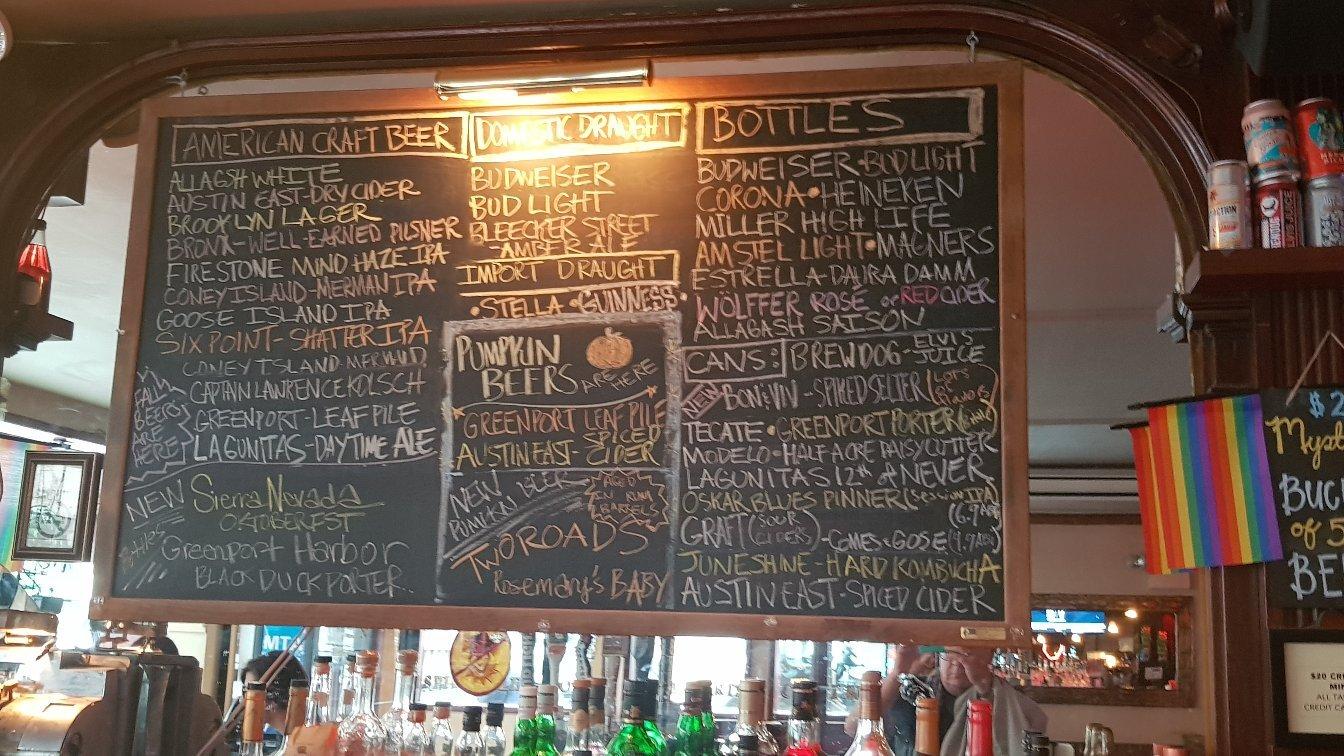 AMERICAN CRAFT BEER
ALLAGSH WHITE
AUSTIN EAST-DRY CIDER
BROOKLYN LAGER
BRONX-WELL-EARNED PILSNER
FIRESTONE MIND HAZE IPA
CONEY ISLAND-MERMAN IPA
GOOSE ISLAND IPA
SIXPOINT-SHATTER IPA
CONEY ISLAND MERMAID
FALL BEERS ARE HERE
CAPTAIN LAWRENCE KOLSCH
GREENPORT-LEAF PILE
LAGUNITAS-DAYTIME ALE
NEW
Sierra Nevada
OKTOBERFEST
Greenport Harbor
BLACK DUCK PORTER
DOMESTIC DRAUGHT
BUDWEISER
BUD LIGHT
BLEECKER STREET
AMBER ALE
IMPORT DRAUGHT
•STELLA•GUINNESS•
PUMPKIN
BEERS ARE HERE
GREENPORT LEAF PILE
AUSTIN EAST-SPICED CIDER
NEW BEER
PUMPKIN
AGED
IN RUM
BARRELS
TWO ROADS
Rosemary's BABY
BOTTLES
BUDWEISER•BUD LIGHT
CORONA•HEINEKEN
MILLER HIGH LIFE
AMSTEL LIGHT•MAGNERS
ESTRELLA-DAURA DAMM
WÖLFFER ROSÉ or RED CIDER
ALLAGASH SAISON
CANS: BREWDOG-ELVIS JUICE
NEW BON & VIV-SPIKED SELTZER
TECATE•GREENPORT PORTER
MODELO•HALF ACRE DAISY CUTTER
LAGUNITAS 12th of NEVER
OSKAR BLUES PINNER (Session IPA)
GRAFT (SOUR CIDERS)-COMES & GOSE
JUNESHINE-HARD KOMBUCHA
AUSTIN EAST-SPICED CIDER
MT
ELVIS JUICE
BUC
of 5
BE
$20 CR
MI
ALL TA
CREDIT CA